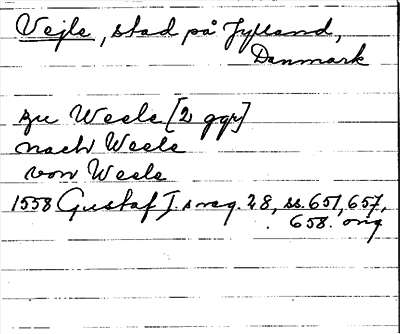 Vejle, stad på Jylland,
Danmark
zu Weele [2 ggr]
nach Weele
von Weele
1558 Gustaf I s reg. 28, ss. 651, 657,
658. orig